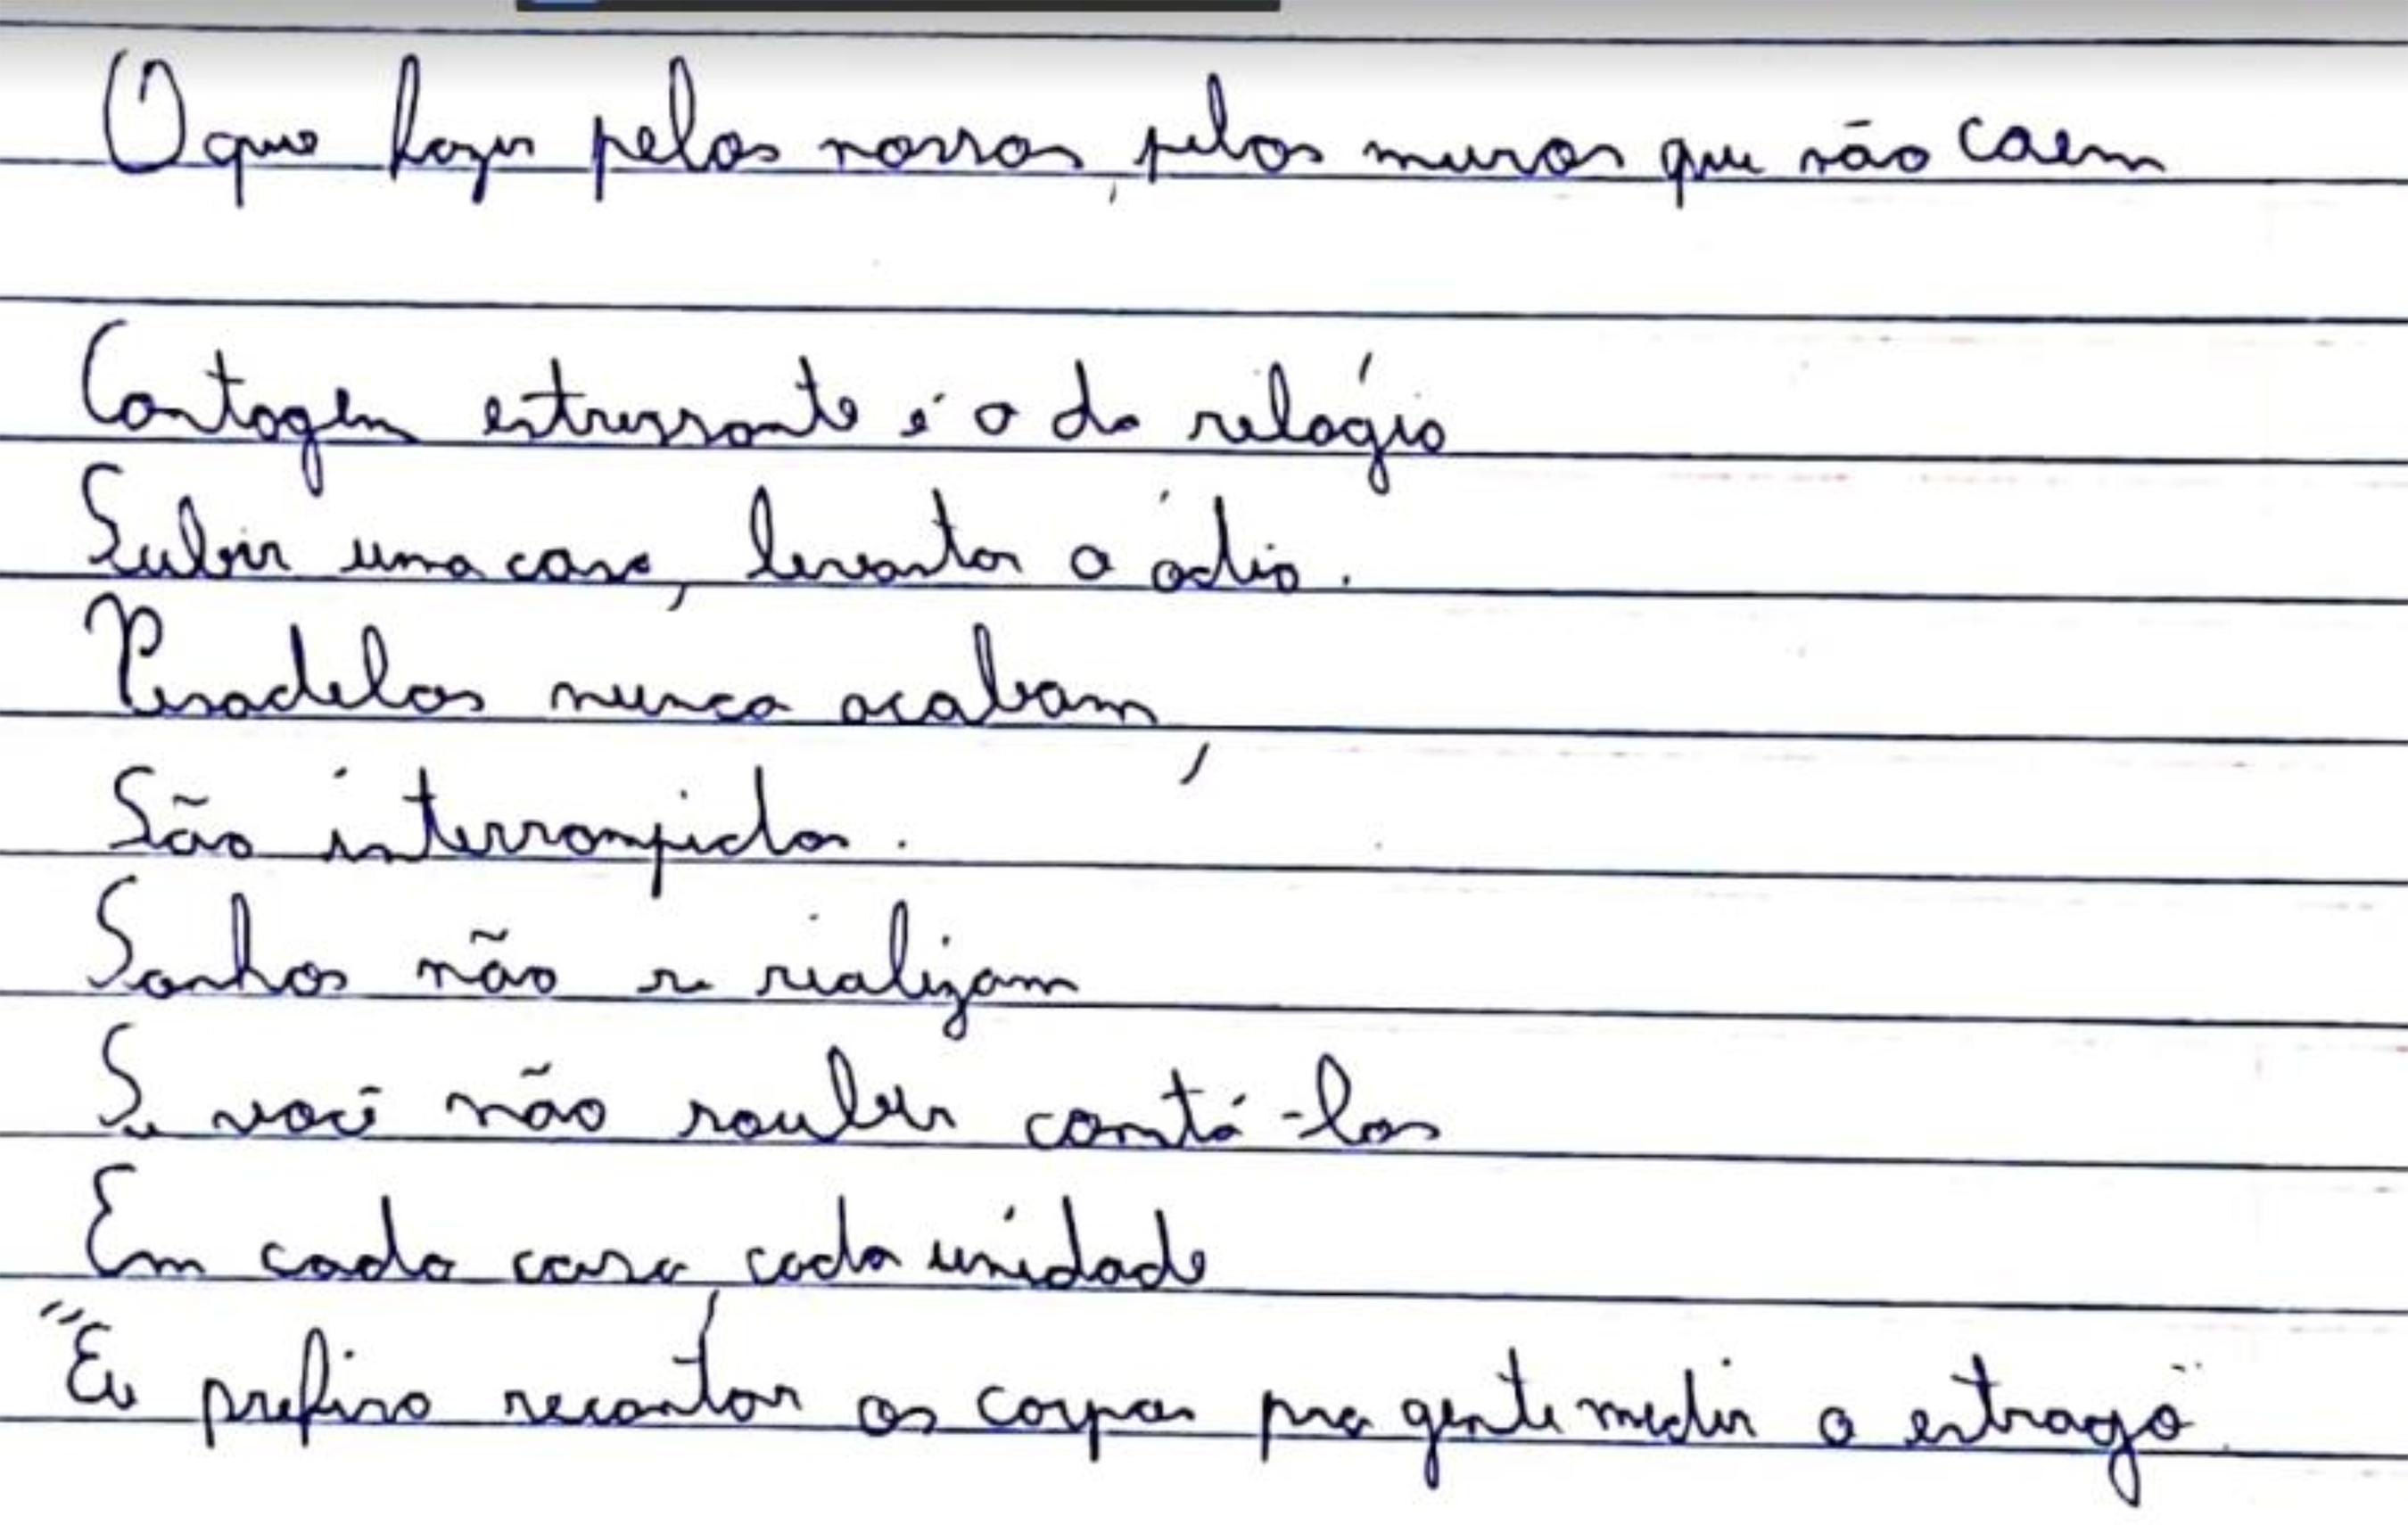 O que fazer pelos nossos, pelos muros que não caem
Contagem estressante é a do relógio
Subir uma casa, levantar o ódio.
Pesadelos nunca acabam,
São interrompidos.
Sonhos não se realizam
Se você não souber contá-los
Em cada casa, cada unidade
"Eu prefiro recontar os corpos pra gente medir o estrago".